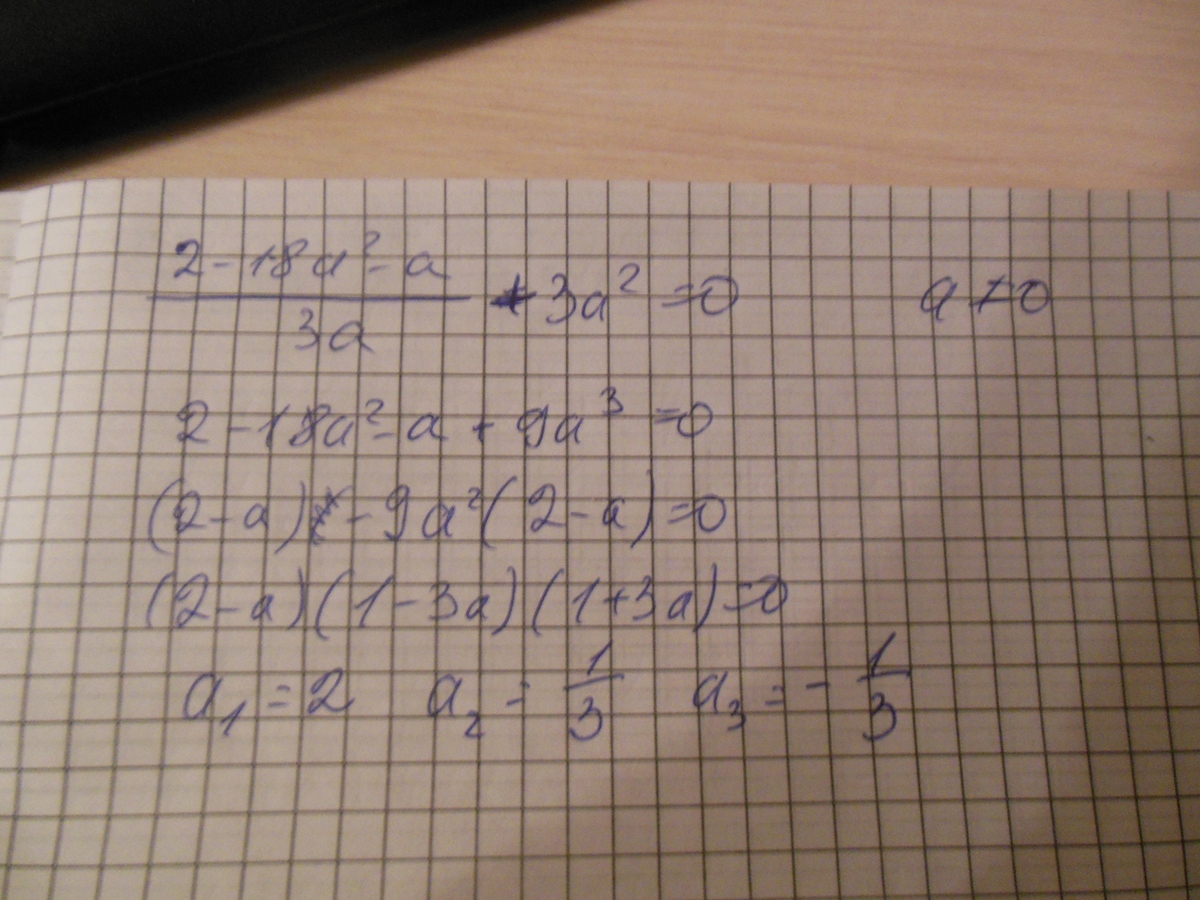 (2-18a²-a)/(3a) + 3a² = 0 a ≠ 0
2-18a²-a+9a³=0
(2-a)-9a²(2-a)=0
(2-a)(1-3a)(1+3a)=0
a₁=2 a₂=1/3 a₃=-1/3